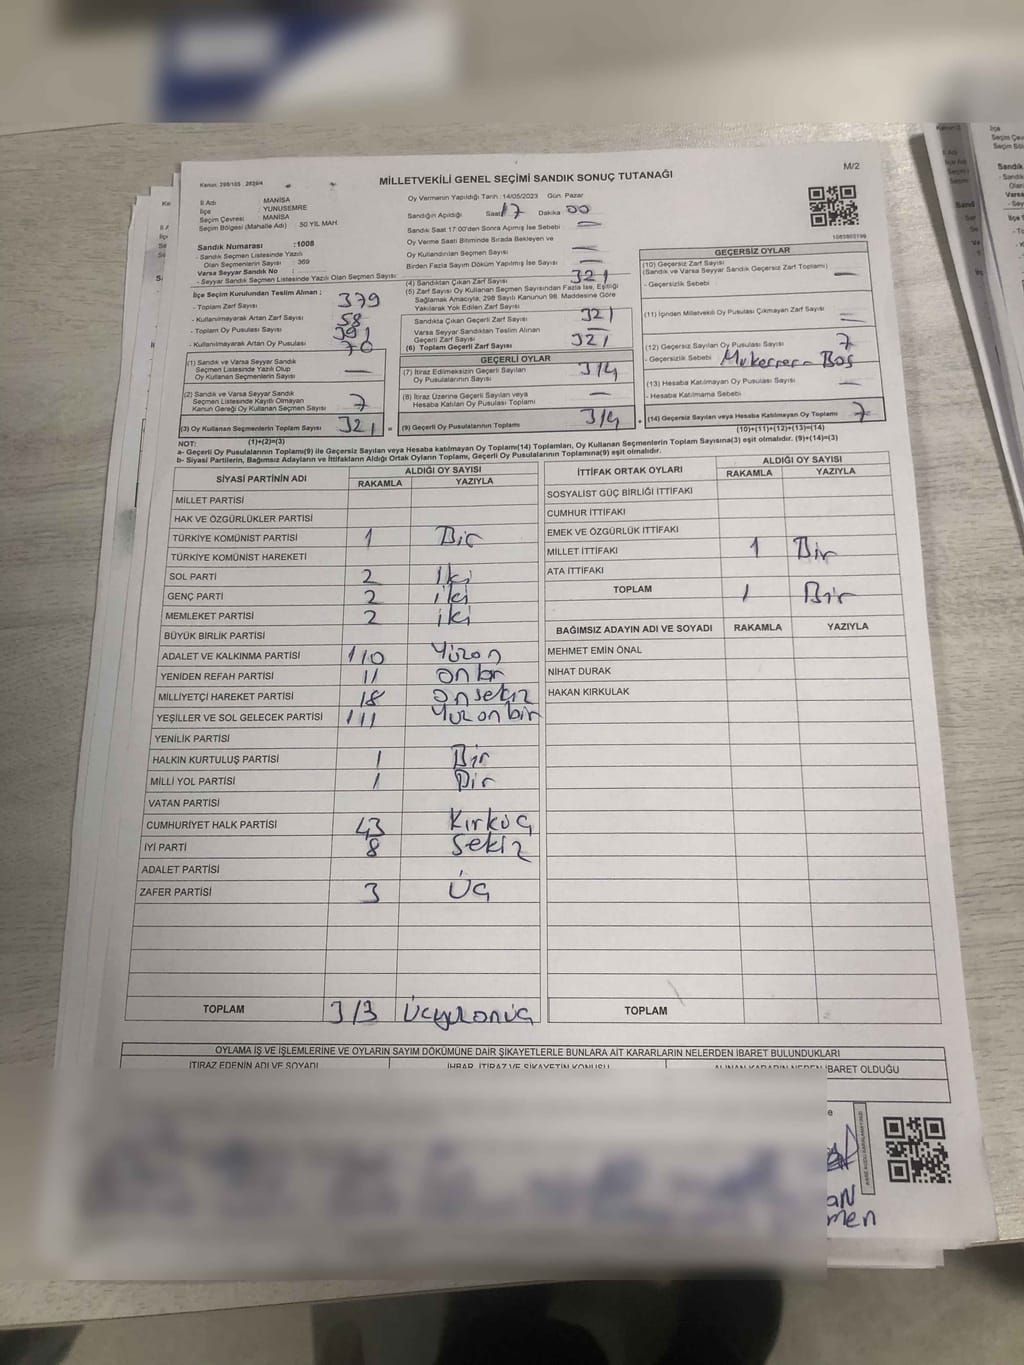 M/2
MİLLETVEKİLİ GENEL SEÇİMİ SANDIK SONUÇ TUTANAĞI
İl Adı : MANİSA
İlçe : YUNUSEMRE
Seçim Çevresi : MANİSA
Seçim Bölgesi (Mahalle Adı) : 50 YIL MAH.
Sandık Numarası :1008
- Sandık Seçmen Listesinde Yazılı
Olan Seçmenlerin Sayısı : 369
Varsa Seyyar Sandık No :
- Seyyar Sandık Seçmen Listesinde Yazılı Olan Seçmen Sayısı:
Oy Vermenin Yapıldığı Tarih : 14/05/2023 Gün Pazar
Sandığın Açıldığı Saat 17 Dakika 00
Sandık Saat 17:00'den Sonra Açılmış İse Sebebi —
Oy Verme Saati Bitiminde Sırada Bekleyen ve
Oy Kullandırılan Seçmen Sayısı —
Birden Fazla Sayım Döküm Yapılmış İse Sayısı —
1063603199
İlçe Seçim Kurulundan Teslim Alınan ;
- Toplam Zarf Sayısı 379
- Kullanılmayarak Artan Zarf Sayısı 58
- Toplam Oy Pusulası Sayısı 391
- Kullanılmayarak Artan Oy Pusulası 70
(1) Sandık ve Varsa Seyyar Sandık
Seçmen Listesinde Yazılı Olup
Oy Kullanan Seçmenlerin Sayısı —
(2) Sandık ve Varsa Seyyar Sandık
Seçmen Listesinde Kayıtlı Olmayan
Kanun Gereği Oy Kullanan Seçmen Sayısı 7
(3) Oy Kullanan Seçmenlerin Toplam Sayısı 321
(1)+(2)=(3)
(4) Sandıktan Çıkan Zarf Sayısı 321
(5) Zarf Sayısı Oy Kullanan Seçmen Sayısından Fazla İse, Eşitliği
Sağlamak Amacıyla; 298 Sayılı Kanunun 98. Maddesine Göre
Yakılarak Yok Edilen Zarf Sayısı
Sandıkta Çıkan Geçerli Zarf Sayısı 321
Varsa Seyyar Sandıktan Teslim Alınan
Geçerli Zarf Sayısı —
(6) Toplam Geçerli Zarf Sayısı 321
GEÇERLİ OYLAR
(7) İtiraz Edilmeksizin Geçerli Sayılan
Oy Pusulalarının Sayısı 314
(8) İtiraz Üzerine Geçerli Sayılan veya
Hesaba Katılan Oy Pusulası Toplamı —
(9) Geçerli Oy Pusulalarının Toplamı 314
GEÇERSİZ OYLAR
(10) Geçersiz Zarf Sayısı
(Sandık ve Varsa Seyyar Sandık Geçersiz Zarf Toplamı) —
- Geçersizlik Sebebi
(11) İçinden Milletvekili Oy Pusulası Çıkmayan Zarf Sayısı —
(12) Geçersiz Sayılan Oy Pusulası Sayısı 7
- Geçersizlik Sebebi Mükerrer - Boş
(13) Hesaba Katılmayan Oy Pusulası Sayısı —
- Hesaba Katılmama Sebebi
(14) Geçersiz Sayılan veya Hesaba Katılmayan Oy Toplamı 7
(10)+(11)+(12)+(13)=(14)
NOT:
a- Geçerli Oy Pusulaları Toplamı(9) ile Geçersiz Sayılan veya Hesaba katılmayan Oy Toplamı(14) Toplamları, Oy Kullanan Seçmenlerin Toplam Sayısına(3) eşit olmalıdır. (9)+(14)=(3)
b- Siyasi Partilerin, Bağımsız Adayların ve İttifakların Aldığı Ortak Oyların Toplamı, Geçerli Oy Pusulalarının Toplamına(9) eşit olmalıdır.
SİYASİ PARTİNİN ADI ALDIĞI OY SAYISI
RAKAMLA YAZIYLA
MİLLET PARTİSİ
HAK VE ÖZGÜRLÜKLER PARTİSİ
TÜRKİYE KOMÜNİST PARTİSİ 1 Bir
TÜRKİYE KOMÜNİST HAREKETİ
SOL PARTİ 2 iki
GENÇ PARTİ 2 iki
MEMLEKET PARTİSİ 2 iki
BÜYÜK BİRLİK PARTİSİ
ADALET VE KALKINMA PARTİSİ 110 Yüzon
YENİDEN REFAH PARTİSİ 11 onbr
MİLLİYETÇİ HAREKET PARTİSİ 18 onsekiz
YEŞİLLER VE SOL GELECEK PARTİSİ 111 Yüzonbir
YENİLİK PARTİSİ
HALKIN KURTULUŞ PARTİSİ 1 Bir
MİLLİ YOL PARTİSİ 1 Bir
VATAN PARTİSİ
CUMHURİYET HALK PARTİSİ 43 Kırküç
İYİ PARTİ 8 Sekiz
ADALET PARTİSİ
ZAFER PARTİSİ 3 Üç
TOPLAM 313 Üçyüzonüç
İTTİFAK ORTAK OYLARI ALDIĞI OY SAYISI
RAKAMLA YAZIYLA
SOSYALİST GÜÇ BİRLİĞİ İTTİFAKI
CUMHUR İTTİFAKI
EMEK VE ÖZGÜRLÜK İTTİFAKI
MİLLET İTTİFAKI 1 Bir
ATA İTTİFAKI
TOPLAM 1 Bir
BAĞIMSIZ ADAYIN ADI VE SOYADI RAKAMLA YAZIYLA
MEHMET EMİN ÖNAL
NİHAT DURAK
HAKAN KIRKULAK
TOPLAM
OYLAMA İŞ VE İŞLEMLERİNE VE OYLARIN SAYIM DÖKÜMÜNE DAİR ŞİKAYETLERLE BUNLARA AİT KARARLARIN NELERDEN İBARET BULUNDUKLARI
İTİRAZ EDENİN ADI VE SOYADI İHBAR, İTİRAZ VE ŞİKAYETİN KONUSU ALINAN KARARIN NEDEN İBARET OLDUĞU